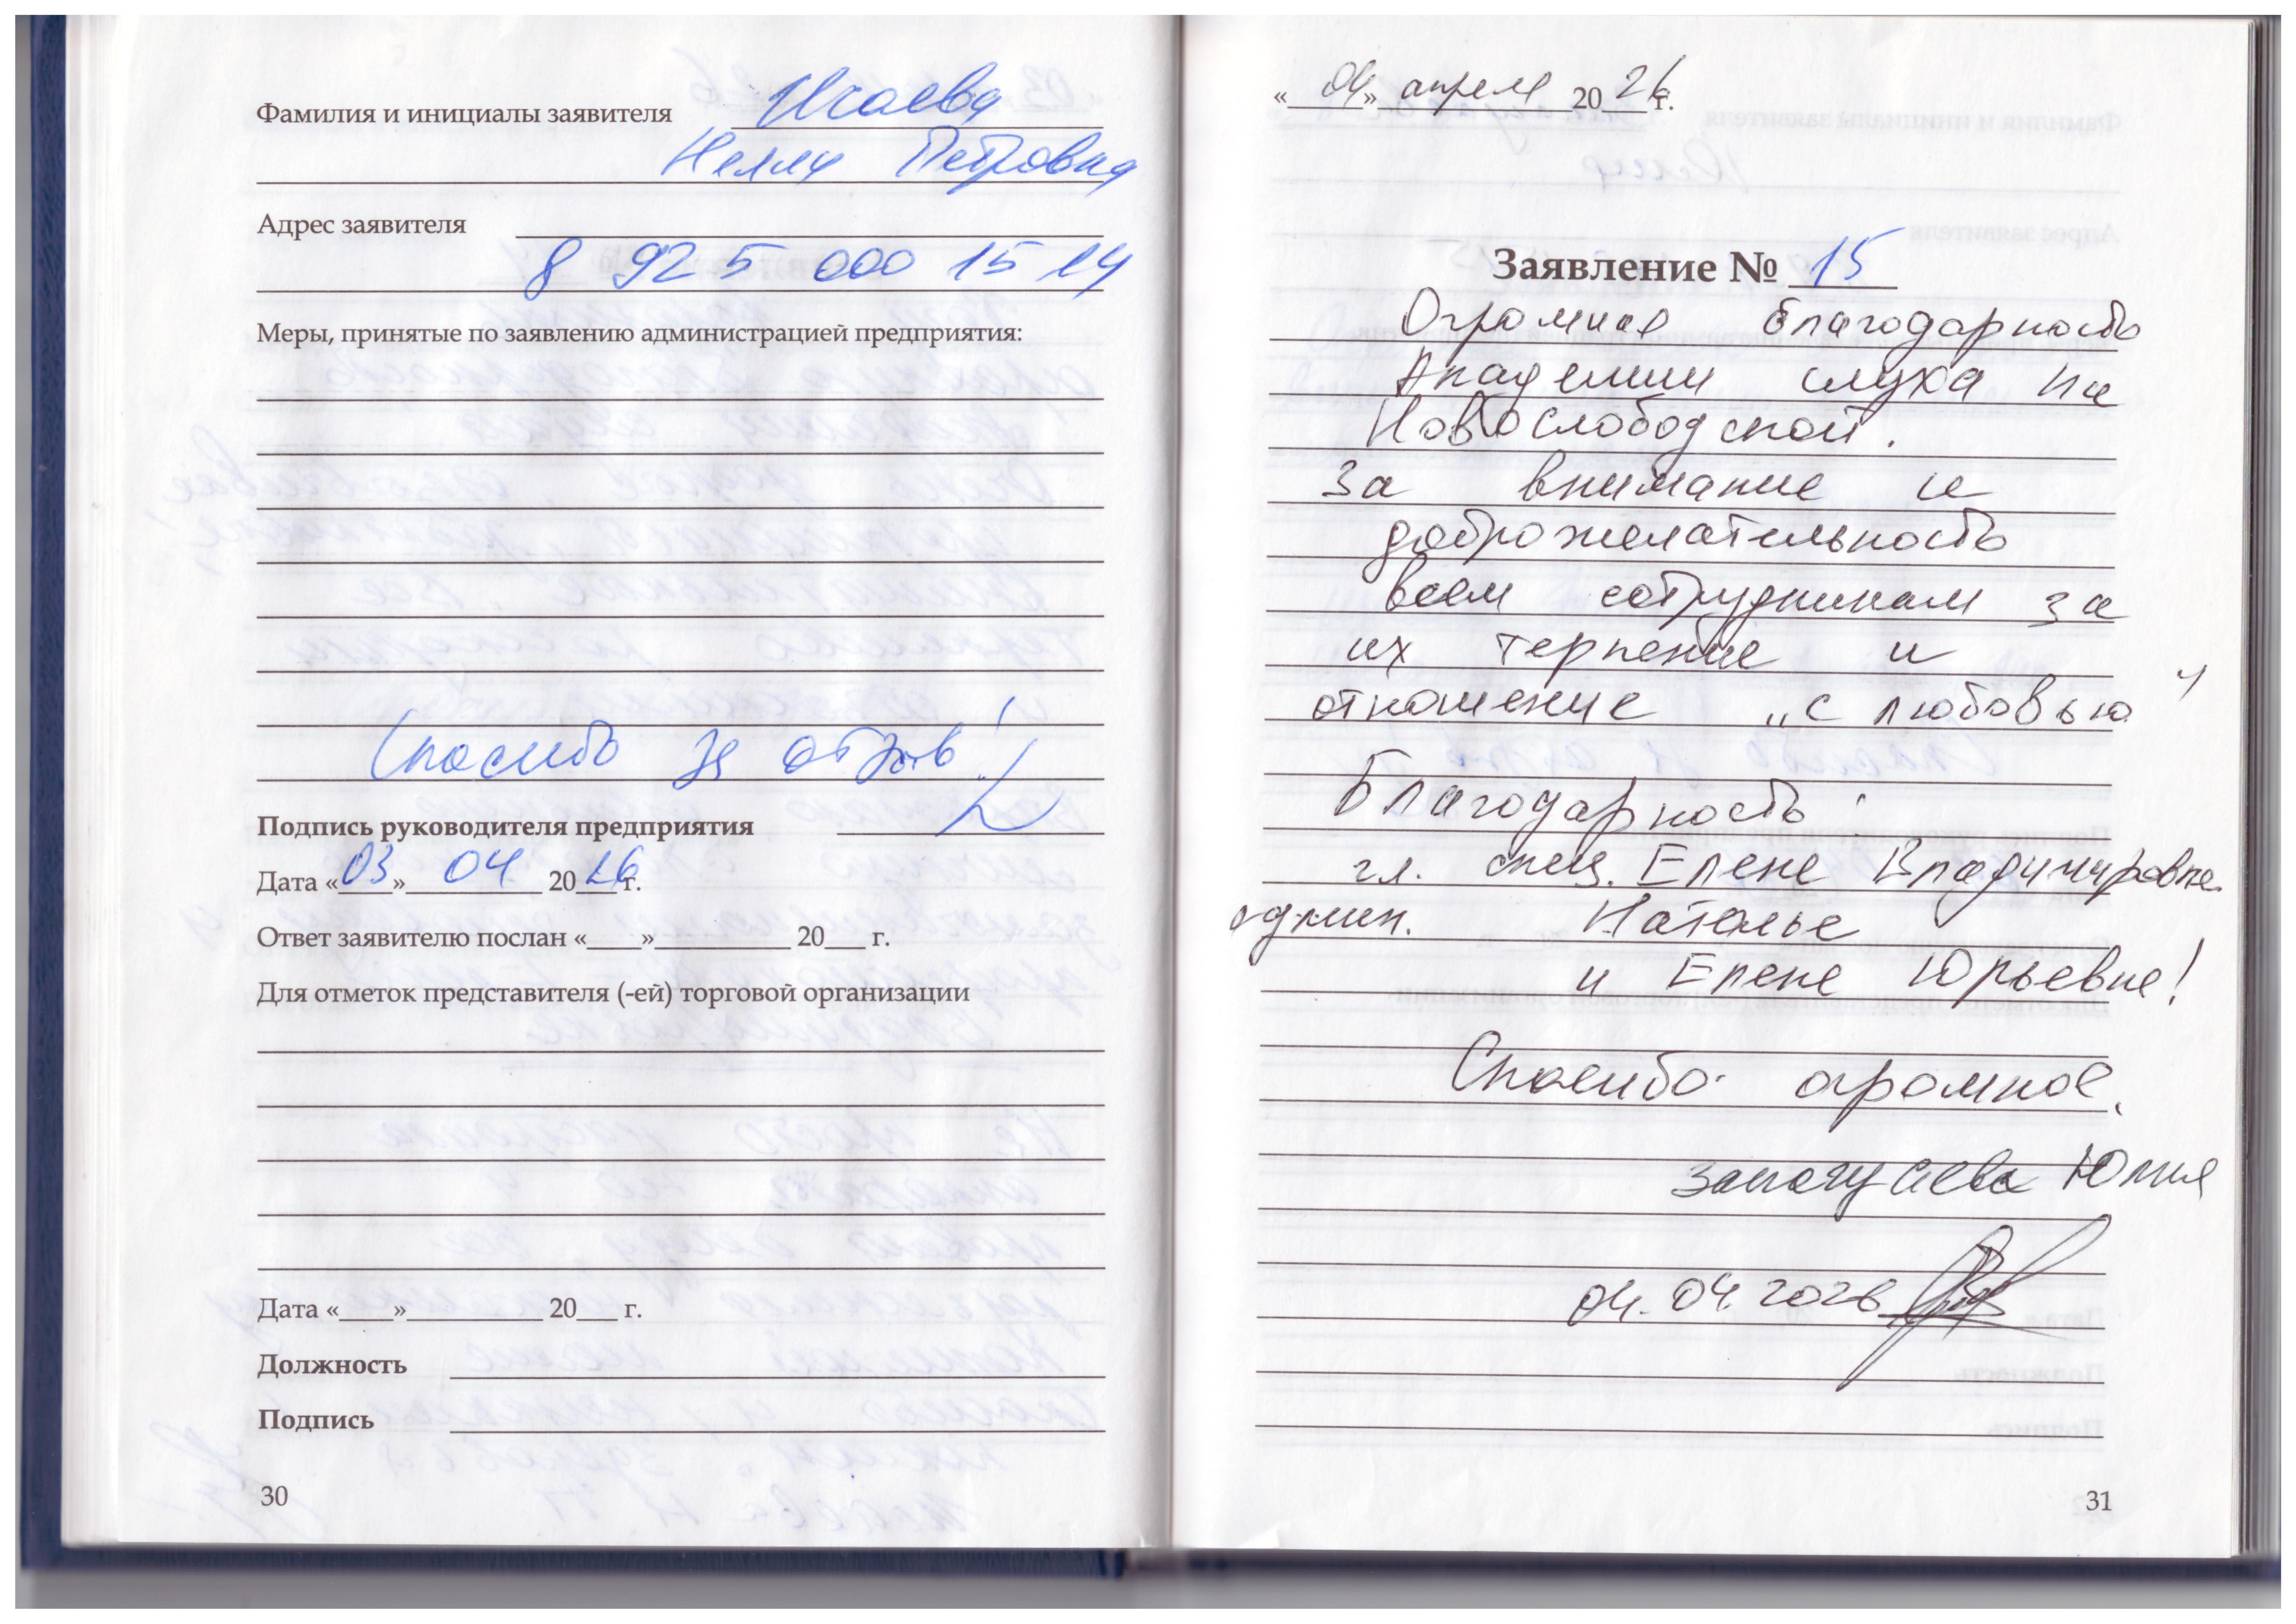 Фамилия и инициалы заявителя Исаева
Нелли Петровна
Адрес заявителя
8 925 000 15 14
Меры, принятые по заявлению администрацией предприятия:
Спасибо за отзыв!
Подпись руководителя предприятия
Дата «03» 04 2026 г.
Ответ заявителю послан «____»__________ 20___ г.
Для отметок представителя (-ей) торговой организации
Дата «____»__________ 20___ г.
Должность
Подпись
30
«04» апреля 2026 г.
Заявление № 15
Огромная благодарность
Академии слуха на
Новослободской.
За внимание и
доброжелательность
всем сотрудникам за
их терпение и
отношение „с любовью"
Благодарность:
гл. спец. Елене Владимировне
админ. Наталье
и Елене Юрьевне!
Спасибо огромное.
Юлия
04.04.2026
31